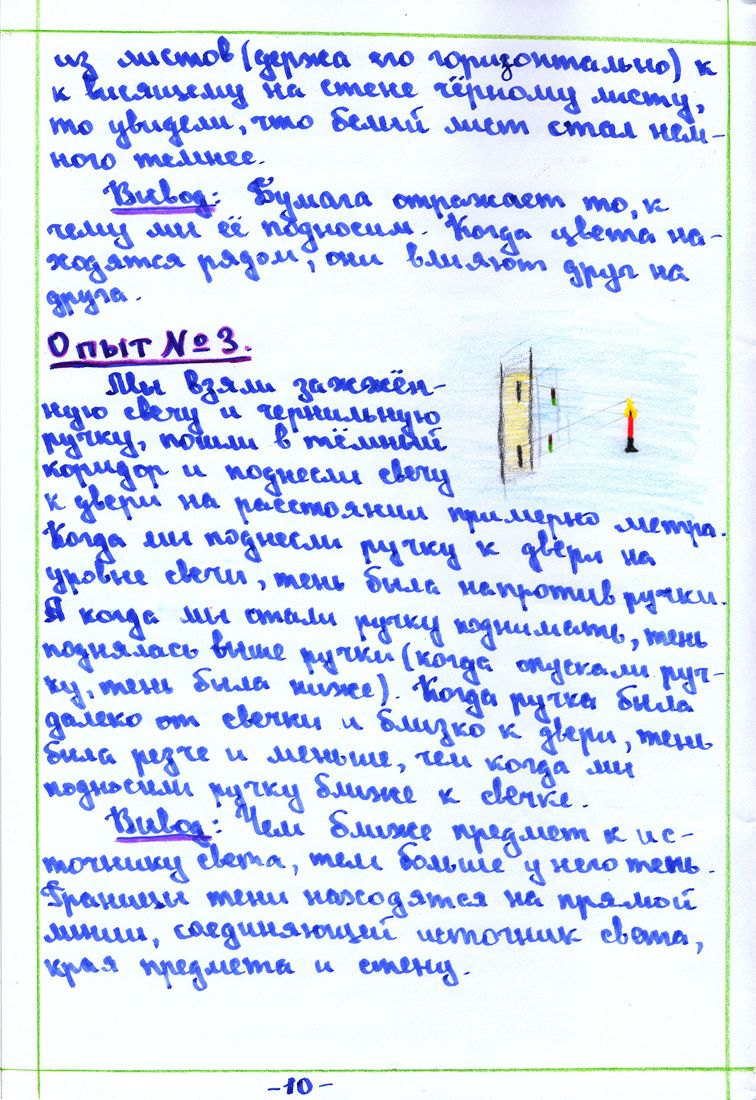 из листов (держа его горизонтально) к
к висящему на стене чёрному листу,
то увидели, что белый лист стал нем-
ного темнее.
Вывод: Бумага отражает то, к
чему мы её подносим. Когда цвета на-
ходятся рядом, они влияют друг на
друга.
Опыт №3.
Мы взяли зажжён-
ную свечу и чернильную
ручку, пошли в тёмный
коридор и поднесли свечу
к двери на расстоянии примерно метра.
Когда мы поднесли ручку к двери на
уровне свечи, тень была напротив ручки.
А когда мы стали ручку поднимать, тень
поднялась выше ручки (когда опускали руч-
ку, тень была ниже). Когда ручка была
далеко от свечки и близко к двери, тень
была резче и меньше, чем когда мы
подносили ручку ближе к свечке.
Вывод: Чем ближе предмет к ис-
точнику света, тем больше у него тень.
Границы тени находятся на прямой
линии, соединяющей источник света,
края предмета и стену.
-10-